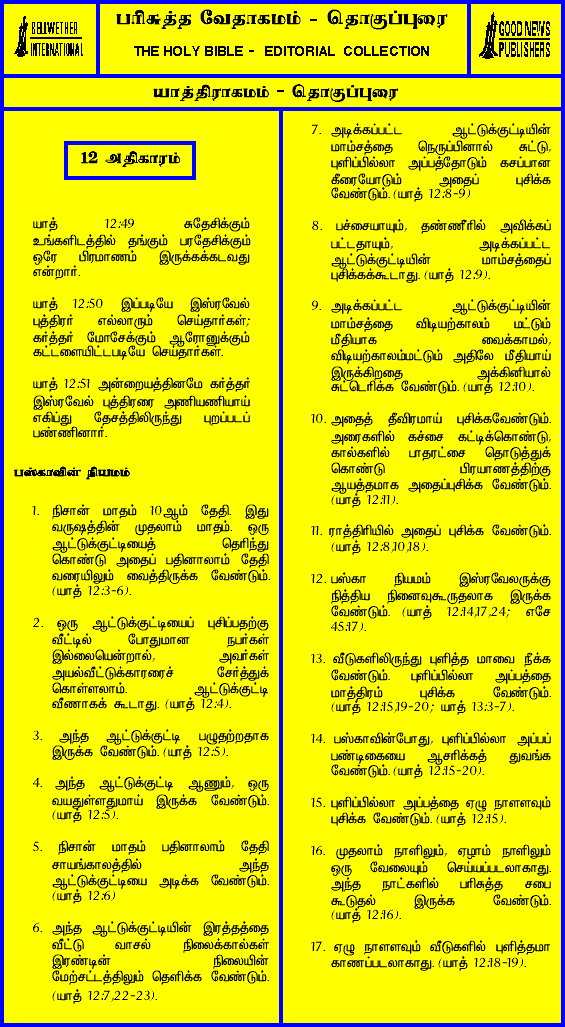 BELLWETHER
INTERNATIONAL
பரிசுத்த வேதாகமம் - தொகுப்புரை
THE HOLY BIBLE - EDITORIAL COLLECTION
GOOD NEWS
PUBLISHERS
யாத்திராகமம் - தொகுப்புரை
12 அதிகாரம்
யாத் 12:49 சுதேசிக்கும்
உங்களிடத்தில் தங்கும் பரதேசிக்கும்
ஒரே பிரமாணம் இருக்கக்கடவது
என்றார்.
யாத் 12:50 இப்படியே இஸ்ரவேல்
புத்திரர் எல்லாரும் செய்தார்கள்;
கர்த்தர் மோசேக்கும் ஆரோனுக்கும்
கட்டளையிட்டபடியே செய்தார்கள்.
யாத் 12:51 அன்றையத்தினமே கர்த்தர்
இஸ்ரவேல் புத்திரரை அணியணியாய்
எகிப்து தேசத்திலிருந்து புறப்படப்
பண்ணினார்.
பஸ்காவின் நியமம்
1. நிசான் மாதம் 10ஆம் தேதி. இது
வருஷத்தின் முதலாம் மாதம். ஒரு
ஆட்டுக்குட்டியைத் தெரிந்து
கொண்டு அதைப் பதினாலாம் தேதி
வரையிலும் வைத்திருக்க வேண்டும்.
(யாத் 12:3-6).
2. ஒரு ஆட்டுக்குட்டியைப் புசிப்பதற்கு
வீட்டில் போதுமான நபர்கள்
இல்லையென்றால், அவர்கள்
அயல்வீட்டுக்காரரைச் சேர்த்துக்
கொள்ளலாம். ஆட்டுக்குட்டி
வீணாகக் கூடாது. (யாத் 12:4).
3. அந்த ஆட்டுக்குட்டி பழுதற்றதாக
இருக்க வேண்டும். (யாத் 12:5).
4. அந்த ஆட்டுக்குட்டி ஆணும், ஒரு
வயதுள்ளதுமாய் இருக்க வேண்டும்.
(யாத் 12:5).
5. நிசான் மாதம் பதினாலாம் தேதி
சாயங்காலத்தில் அந்த
ஆட்டுக்குட்டியை அடிக்க வேண்டும்.
(யாத் 12:6)
6. அந்த ஆட்டுக்குட்டியின் இரத்தத்தை
வீட்டு வாசல் நிலைக்கால்கள்
இரண்டின் நிலையின்
மேற்சட்டத்திலும் தெளிக்க வேண்டும்.
(யாத் 12:7,22-23).
7. அடிக்கப்பட்ட ஆட்டுக்குட்டியின்
மாம்சத்தை நெருப்பினால் சுட்டு,
புளிப்பில்லா அப்பத்தோடும் கசப்பான
கீரையோடும் அதைப் புசிக்க
வேண்டும். (யாத் 12:8-9)
8. பச்சையாயும், தண்ணீரில் அவிக்கப்
பட்டதாயும், அடிக்கப்பட்ட
ஆட்டுக்குட்டியின் மாம்சத்தைப்
புசிக்கக்கூடாது. (யாத் 12:9).
9. அடிக்கப்பட்ட ஆட்டுக்குட்டியின்
மாம்சத்தை விடியற்காலம் மட்டும்
மீதியாக வைக்காமல்,
விடியற்காலம்மட்டும் அதிலே மீதியாய்
இருக்கிறதை அக்கினியால்
சுட்டெரிக்க வேண்டும். (யாத் 12:10).
10. அதைத் தீவிரமாய் புசிக்கவேண்டும்.
அரைகளில் கச்சை கட்டிக்கொண்டு,
கால்களில் பாதரட்சை தொடுத்துக்
கொண்டு பிரயாணத்திற்கு
ஆயத்தமாக அதைப்புசிக்க வேண்டும்.
(யாத் 12:11).
11. ராத்திரியில் அதைப் புசிக்க வேண்டும்.
(யாத் 12:8,10,18).
12. பஸ்கா நியமம் இஸ்ரவேலருக்கு
நித்திய நினைவுகூருதலாக இருக்க
வேண்டும். (யாத் 12:14,17,24; எசே
45:17).
13. வீடுகளிலிருந்து புளித்த மாவை நீக்க
வேண்டும். புளிப்பில்லா அப்பத்தை
மாத்திரம் புசிக்க வேண்டும்.
(யாத் 12:15,19-20; யாத் 13:3-7).
14. பஸ்காவின்போது, புளிப்பில்லா அப்பப்
பண்டிகையை ஆசரிக்கத் துவங்க
வேண்டும். (யாத் 12:15-20).
15. புளிப்பில்லா அப்பத்தை ஏழு நாளளவும்
புசிக்க வேண்டும். (யாத் 12:15).
16. முதலாம் நாளிலும், ஏழாம் நாளிலும்
ஒரு வேலையும் செய்யப்படலாகாது.
அந்த நாட்களில் பரிசுத்த சபை
கூடுதல் இருக்க வேண்டும்.
(யாத் 12:16).
17. ஏழு நாளளவும் வீடுகளில் புளித்தமா
காணப்படலாகாது. (யாத் 12:18-19).